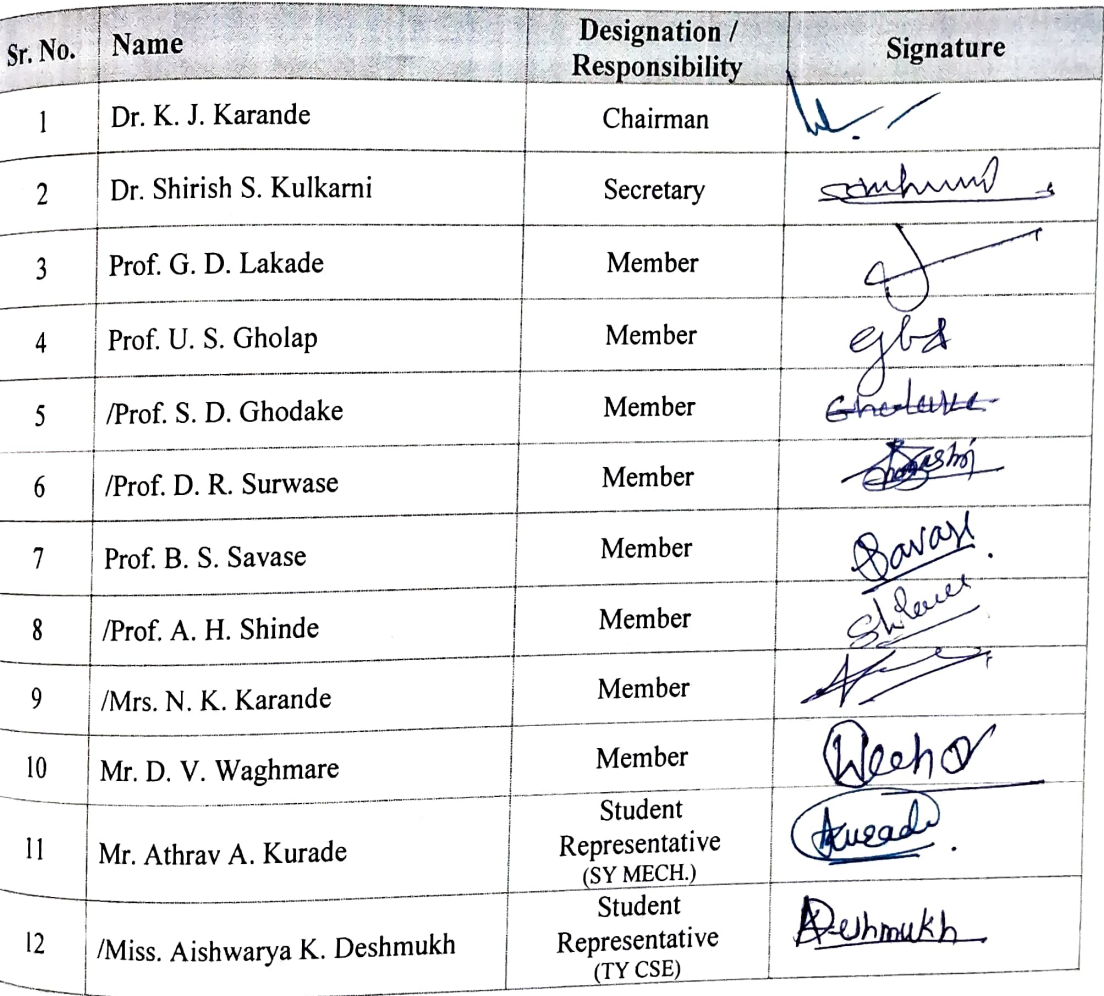 Sr. No. Name Designation / Responsibility Signature
1 Dr. K. J. Karande Chairman
2 Dr. Shirish S. Kulkarni Secretary
3 Prof. G. D. Lakade Member
4 Prof. U. S. Gholap Member
5 /Prof. S. D. Ghodake Member
6 /Prof. D. R. Surwase Member
7 Prof. B. S. Savase Member
8 /Prof. A. H. Shinde Member
9 /Mrs. N. K. Karande Member
10 Mr. D. V. Waghmare Member
11 Mr. Athrav A. Kurade Student Representative (SY MECH.)
12 /Miss. Aishwarya K. Deshmukh Student Representative (TY CSE) Deshmukh